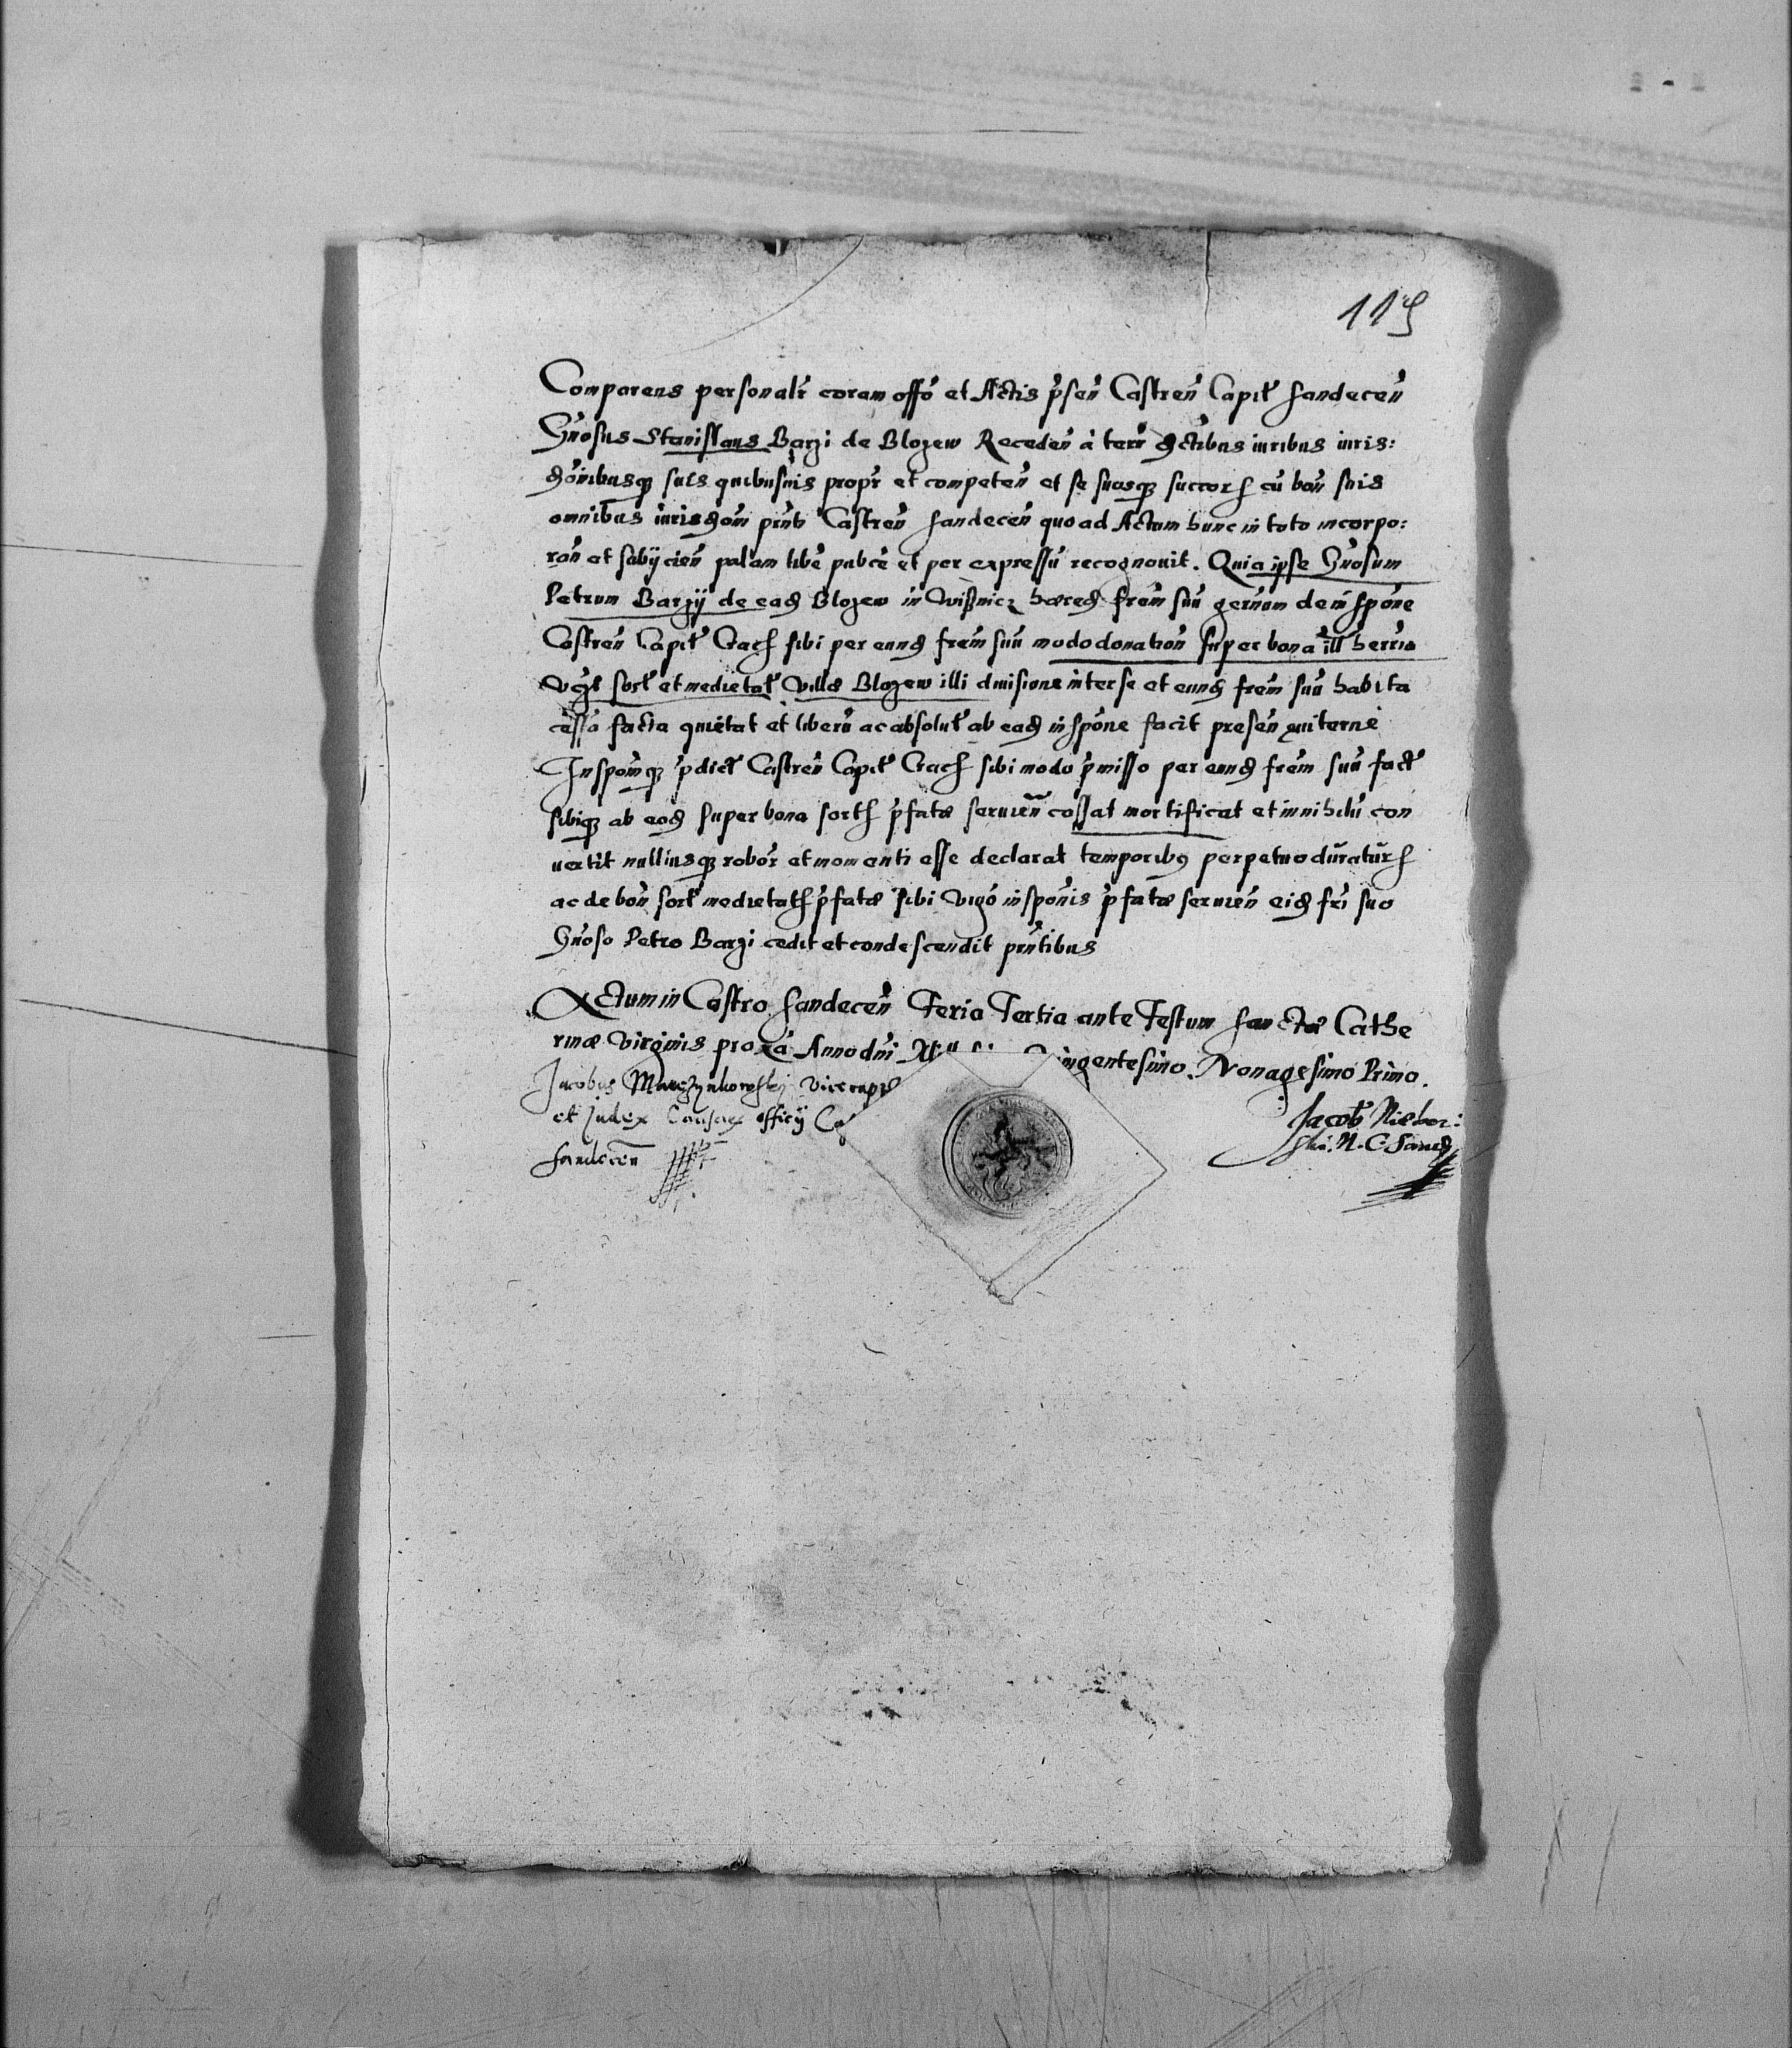 115
Comparens personalr coram offo et Actis psen Castren Capit Sandecen
Gnosus Stanislaus Barzi de Blozew Receden à terr dctibus iuribus iuris:
donibusq suis quibusuis propr et competen et se suosq succor cu bon suis
omnibus iurisdom prnti Castren Sandecen quo ad Actum hunc in toto incorpo:
ran et subijcien palam libe pubce et per expressu recognouit. Quia ipse Gnosum
Petrum Barzij de ead Blozew in Wißnicz hæred frem suu gernum de inspone
Castren Capit Crac sibi per eund frem suu modo donation super bona ill hærria
vgt sort et medietat villæ Blozew illi diuisione inter se et eund frem suu habita
cessa facta quietat et liberu ac absolut ab ead inspone facit presen quiterne
Insponemq pdict Castren Capit Crac sibi modo pmisso per eund frem suu fact
sibiq ab eod super bona sort pfatæ seruien cassat mortificat et in nihilu con
uertit nulliusq robor et momenti esse declarat temporibus perpetuo duratur
ac de bon sort medietat pfatæ sibi vigo insponis pfatæ seruien eid fri suo
Gnoso Petro Barzi cedit et condescendit prntibus
Actum in Castro Sandecen Feria Tertia ante Festum sanctæ Cathe
rinæ virginis proxa Anno dni ingentesimo. Nonagesimo Primo.
Jacobus vicecapit
et Judex Causar officij Ca
Sandecen
Jacob Niebor:
N. C. Sand